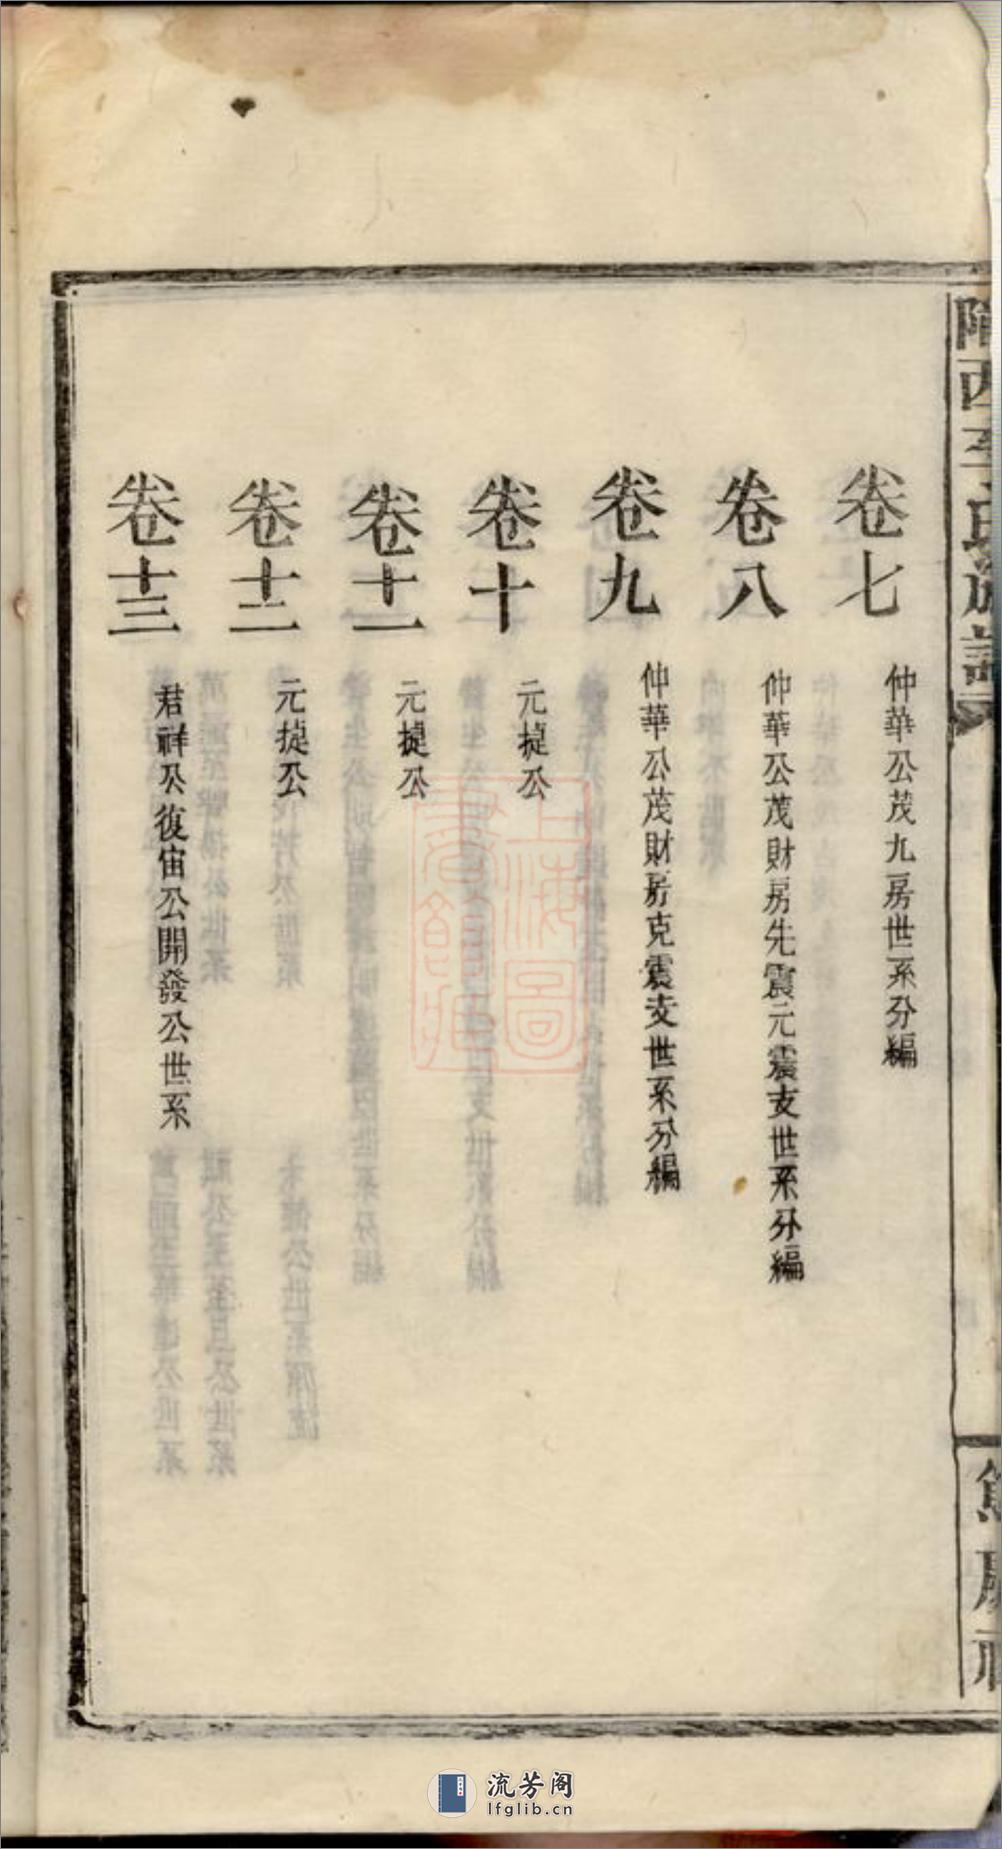 隴西李氏族譜
卷七
仲華公茂九房世系分編
卷八
仲華公茂財房先震元震支世系分編
卷九
仲華公茂財房克震支世系分編
卷十
元提公
卷十一
元提公
卷十二
元提公
卷十三
君祥公復宙公開發公世系
上海圖
書館藏
流芳阁
lfglib.cn